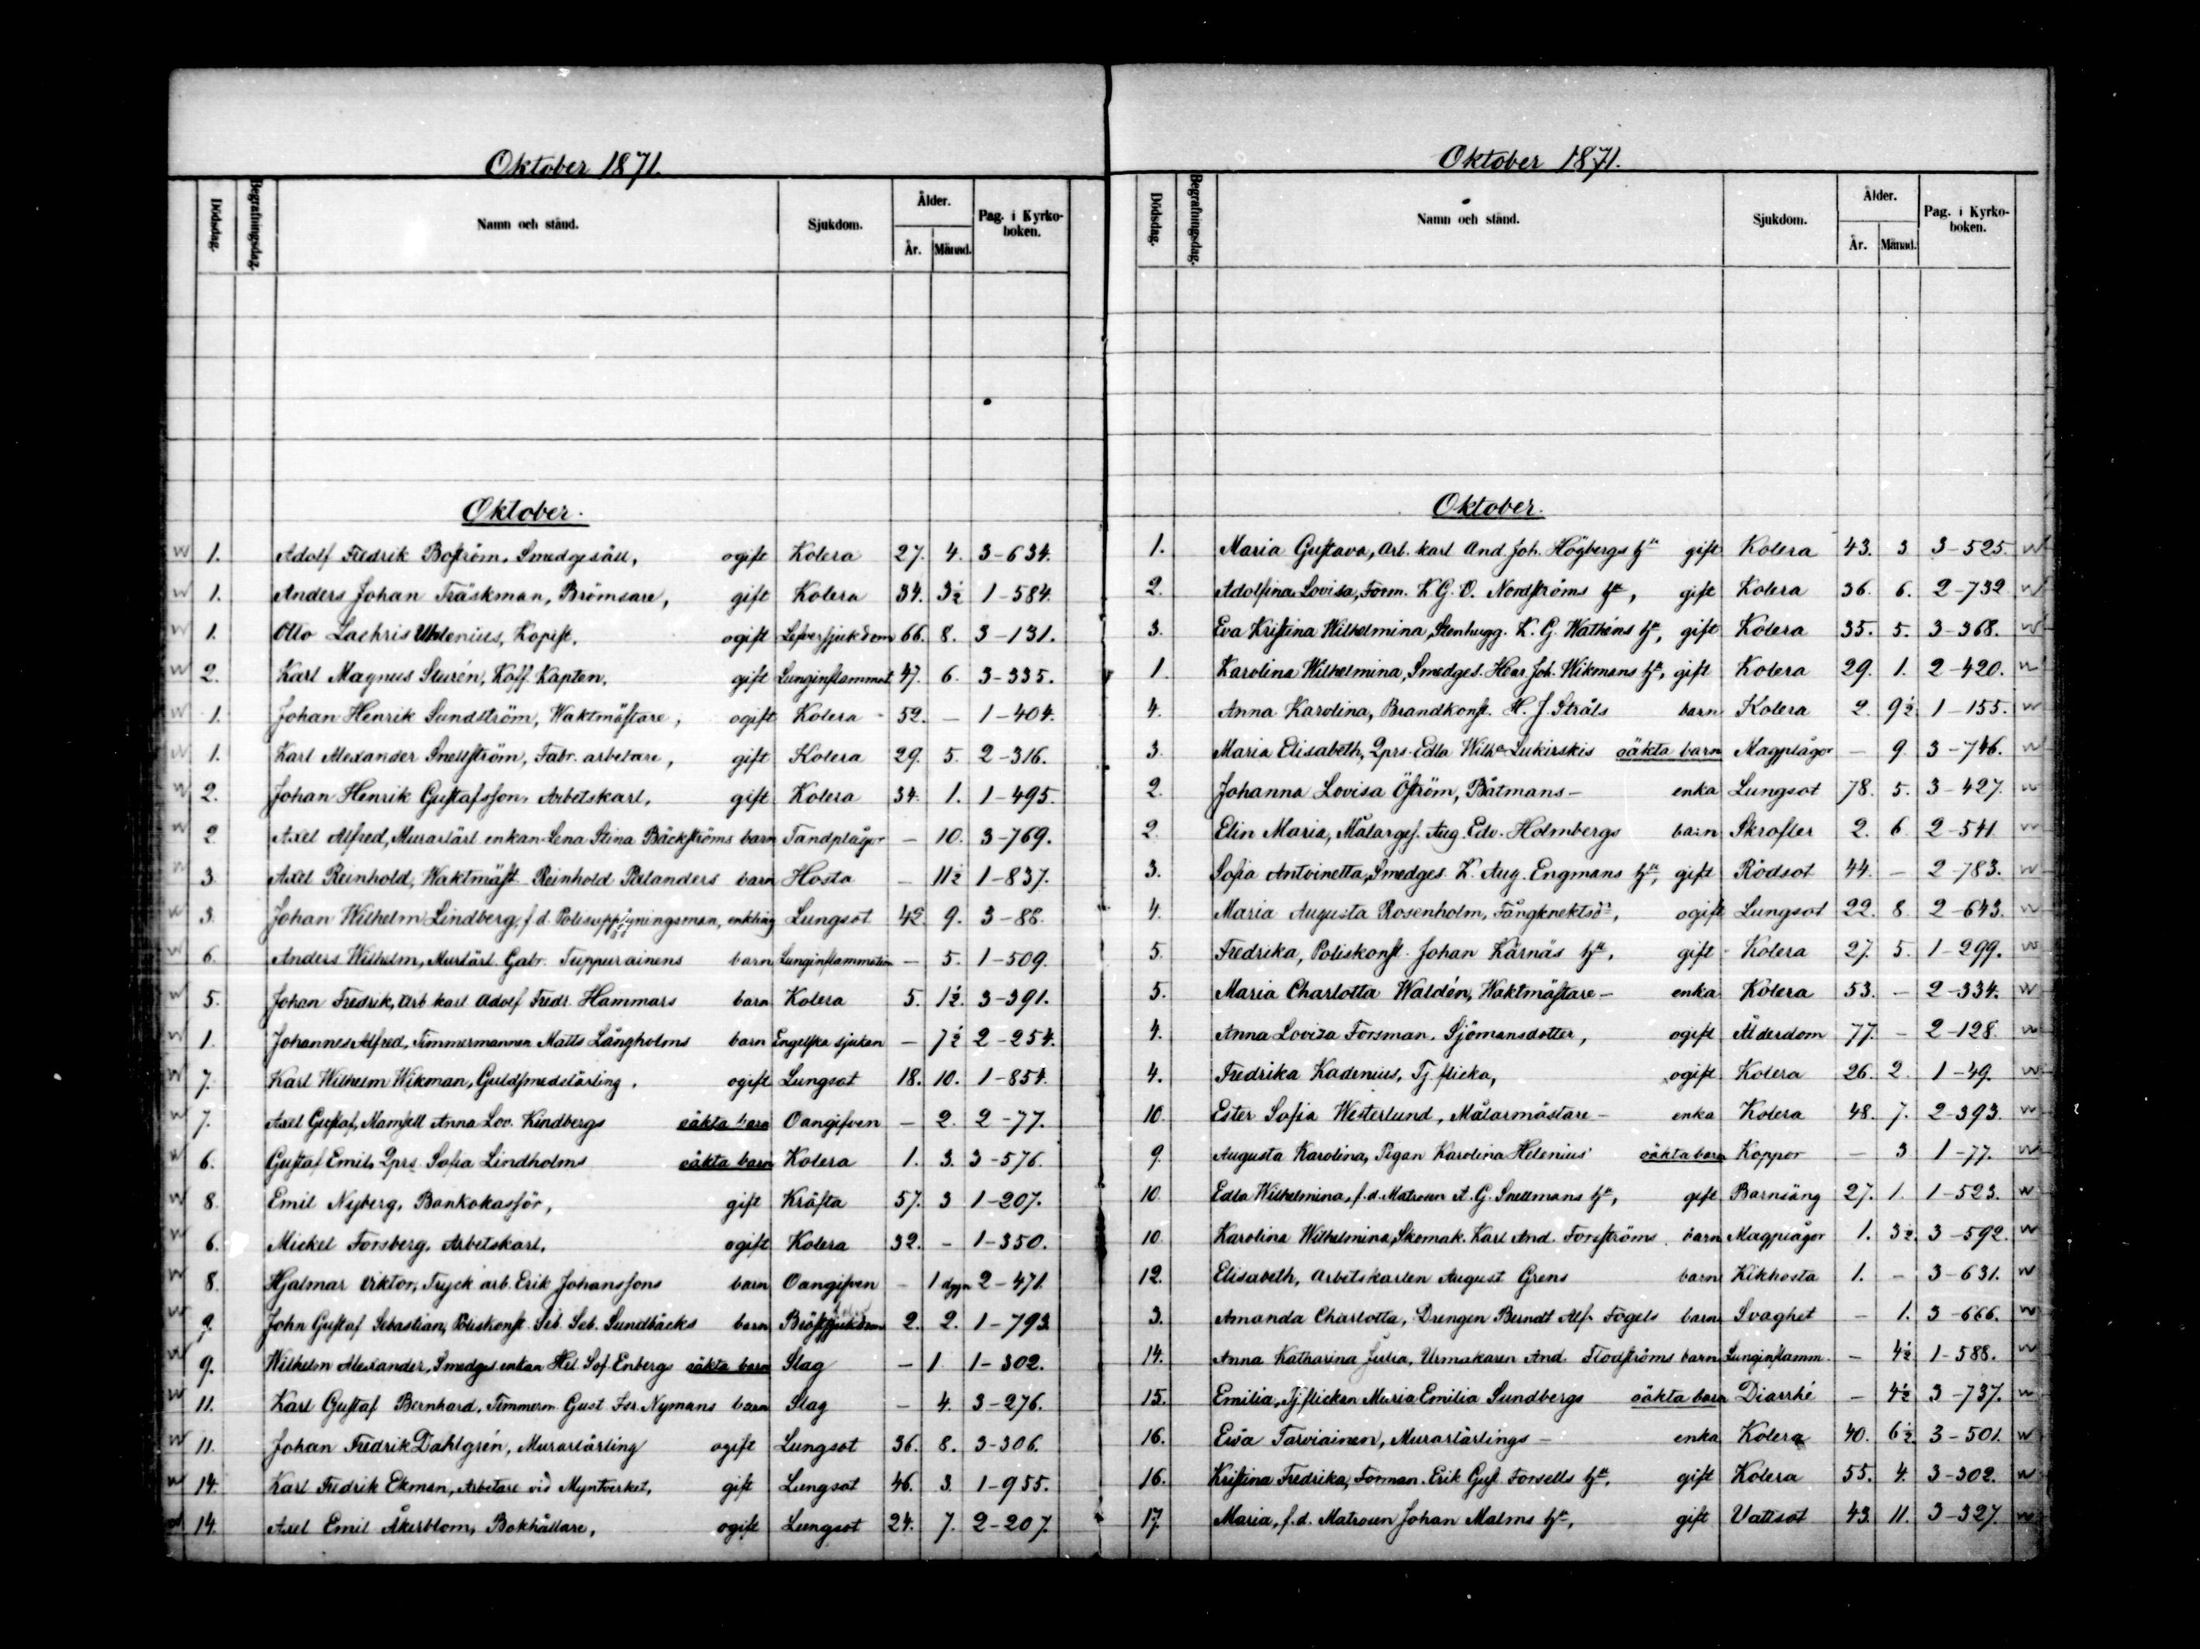 Oktober 1871.
Dödsdag. Begrafningsdag. Namn och stånd. Sjukdom. Ålder. År. Månad. Pag. i Kyrko-boken.
Oktober.
1. Adolf Fredrik Boström, Smedgesäll, ogift Kolera 27. 4. 3-634.
1. Anders Johan Träskman, Brömsare, gift Kolera 34. 3½ 1-584.
1. Otto Zachris Uhlenius, Kopist, ogift Lefversjukdom 66. 8. 3-131.
2. Karl Magnus Sturén, Koff. Kapten, gift Lunginflammat. 47. 6. 3-335.
1. Johan Henrik Sundström, Waktmästare, ogift Kolera 52. — 1-404.
1. Karl Alexander Snellström, Fabr. arbetare, gift Kolera 29. 5. 2-316.
2. Johan Henrik Gustafsson, Arbetskarl, gift Kolera 34. 1. 1-495.
2 Axel Alfred, Murarlärl. enkan Lena Stina Bäckströms barn Tandplågor — 10. 3-769.
3. Axel Reinhold, Waktmäst. Reinhold Palanders barn Hosta — 11½ 1-837.
3. Johan Wilhelm Lindberg, f.d. Polisuppsyningsman, enkling Lungsot 42. 9. 3-88.
6. Anders Wilhelm, Murlärl. Gabr. Tuppurainens barn Lunginflammation — 5. 1-509.
5. Johan Fredrik, Arb. karl Adolf Fredr. Hammars barn Kolera 5. 1½. 3-391.
1. Johannes Alfred, Timmermannen Matts Långholms barn Engelska sjukan — 7½ 2-254.
7. Karl Wilhelm Wikman, Guldsmedslärling, ogift Lungsot 18. 10. 1-854.
7. Axel Gustaf, Mamsell Anna Lov. Kindbergs oäkta barn Oangifven — 2. 2-77.
6. Gustaf Emil, Qprs. Sofia Lindholms oäkta barn Kolera 1. 3. 3-576.
8. Emil Nyberg, Bankokassör, gift Kräfta 57. 3 1-207.
6. Mickel Forsberg, Arbetskarl, ogift Kolera 32. - 1-350.
8. Hjalmar Viktor, Tryck. arb. Erik Johanssons barn Oangifven - 1 dygn 2-471
9. John Gustaf Sebastian, Poliskonst. Seb. Seb. Sundbäcks barn Bröstsjukdom 2. 2. 1-793
9. Wilhelm Alexander, Smedges. enkan Hel. Sof. Enbergs oäkta barn Slag — 1 1-302.
11. Karl Gustaf Bernhard, Timmerm. Gust. Isr. Nymans barn Slag — 4. 3-276.
11. Johan Fredrik Dahlgrén, Murarlärling ogift Lungsot 36. 8. 3-306.
14. Karl Fredrik Ekman, Arbetare vid Myntverket, gift Lungsot 46. 3. 1-955.
14. Axel Emil Åkerblom, Bokhållare, ogift Lungsot 24. 7. 2-207.
Oktober 1871.
Dödsdag. Begrafningsdag. Namn och stånd. Sjukdom. Ålder. År. Månad. Pag. i Kyrko-boken.
Oktober.
1. Maria Gustava, Arb. karl And. Joh. Högbergs h:u gift Kolera 43. 3 3-525.
2. Adolfina Lovisa, Form. K. G. O. Nordströms h:u, gift Kolera 36. 6. 2-732
3. Eva Kristina Wilhelmina, Stenhugg. K. G. Wathéns h:u, gift Kolera 35. 5. 3-368.
1. Karolina Wilhelmina, Smedges. Henr. Joh. Wikmans h:u, gift Kolera 29. 1. 2-420.
4. Anna Karolina, Brandkonst. H. J. Stråls barn Kolera 2. 9½ 1-155.
3. Maria Elisabeth, Qprs. Edla Wilh:a Lukirskis oäkta barn Magplågor — 9. 3-746.
2. Johanna Lovisa Öström, Båtmans- enka Lungsot 78. 5. 3-427.
2. Elin Maria, Målarges. Aug. Edv. Holmbergs barn Skrofler 2. 6 2-541
3. Sofia Antoinetta, Smedges. K. Aug. Engmans h:u, gift Rödsot 44. — 2-783.
4. Maria Augusta Rosenholm, Fångknektsd:r, ogift Lungsot 22. 8. 2-643.
5. Fredrika, Poliskonst. Johan Kärnäs h:u, gift Kolera 27. 5. 1-299.
5. Maria Charlotta Waldén, Waktmästare- enka Kolera 53. — 2-334.
4. Anna Lovisa Forsman, Sjömansdotter, ogift Ålderdom 77. — 2-128.
4. Fredrika Kadenius, Tj. flicka, ogift Kolera 26. 2. 1-49.
10. Ester Sofia Westerlund, Målarmästare- enka Kolera 48. 7. 2-393.
9. Augusta Karolina, Pigan Karolina Helenius' oäkta barn Koppor — 3 1-77.
10. Edla Wilhelmina, f.d. Matrosen A. G. Snellmans h:u, gift Barnsäng 27. 1. 1-523.
10. Karolina Wilhelmina, Skomak. Karl And. Forsströms barn Magplågor 1. 3½. 3-592.
12. Elisabeth, Arbetskarlen August Grens barn Kikhosta 1. - 3-631.
3. Amanda Charlotta, Drengen Berndt Alfr. Fogels barn Svaghet — 1. 3-666.
14. Anna Katharina Julia, Urmakaren And. Flodströms barn Lunginflamm. — 4½ 1-588.
15. Emilia, Tj. flickan Maria Emilia Sundbergs oäkta barn Diarrhé — 4½ 3-737.
16. Ewa Tarviainen, Murarlärlings- enka Kolera 40. 6½. 3-501.
16. Kristina Fredrika, Forman. Erik Gust. Forsells h:u, gift Kolera 55. 4. 3-302.
17. Maria, f.d. Matrosen Johan Malms h:u, gift Vattsot 43. 11. 3-327.